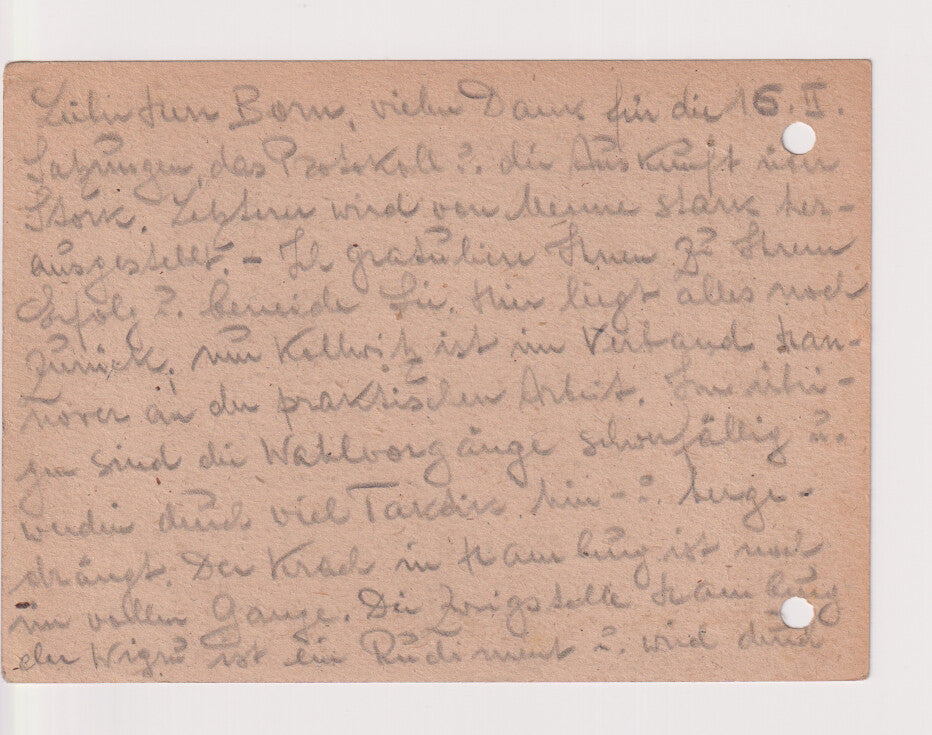 Lieber Herr Born, vielen Dank für die 16. II.
Satzungen, das Protokoll u. die Auskunft über
Stork. Letzterer wird von Menne stark her-
ausgestellt. – Ich gratuliere Ihnen zu Ihrem
Erfolg u. beneide Sie. Hier liegt alles noch
zurück, nur Kollwitz ist im Verband Han-
nover an der praktischen Arbeit. Im übri-
gen sind die Wahlvorgänge schwerfällig u.
werden durch viel Taktik hin- u. herge-
drängt. Der Krach in Hamburg ist noch
im vollen Gange. Die Zweigstelle Hamburg
der Wigru ist ein Rudiment u. wird durch